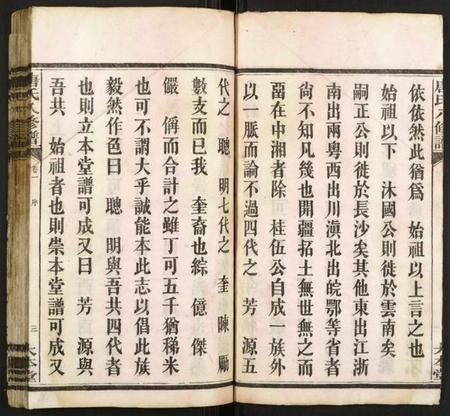 依依然此猶爲　始祖以上言之也
始祖以下　沐國公則徙於雲南矣
嗣正公則徙於長沙矣其他東出江浙
南出兩粤西出川滇北出皖鄂等省者
尚不知凡幾也開疆拓土無世無之而
畱在中湘者除　桂伍公自成一族外
以一脈而論不過四代之　芳源五
代之　聰明七代之　奎陳勵
數支而已我　奎裔也綜　億傑
儼　偁而合計之雖丁可五千猶稊米
也可不謂大乎誠能本此志以倡此族
毅然作色曰　聰　明與吾共四代者
也則立本堂譜可成又曰　芳　源與
吾共　始祖者也則崇本堂譜可成又
唐氏八修譜
卷一　序
三　大本堂
唐氏八修譜
大本堂